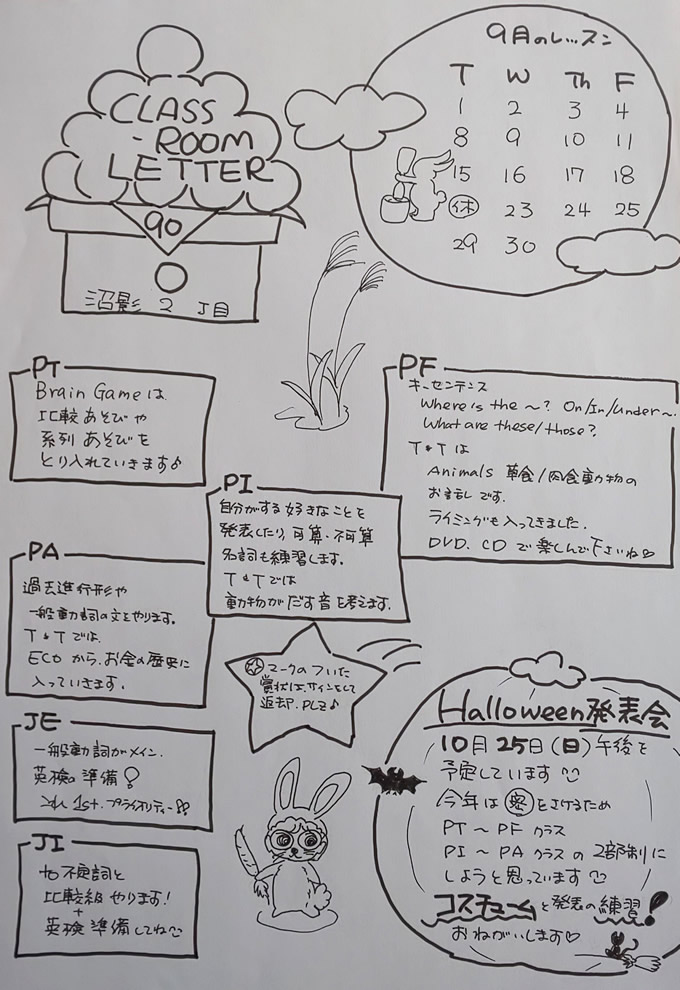 CLASS
-ROOM
LETTER
90
沼影 2 丁目
9月のレッスン
T W Th F
1 2 3 4
8 9 10 11
15 16 17 18
休 23 24 25
29 30
PT
Brain Gameは
比較あそびや
系列あそびを
とり入れていきます♪
PF
キーセンテンス
Where is the ～? On/In/Under～.
What are these/those?
T&Tは
Animals 草食/肉食動物の
お話しです.
ライミングも入ってきました.
DVD. CDで楽しんで下さいね♡
PI
自分がする好きなことを
発表したり、可算・不可算
名詞も練習します.
T&Tでは
動物がだす音を考えます.
PA
過去進行形や
一般動詞の文をやります.
T&Tでは.
ECOから、お金の歴史に
入っていきます.
マークのついた
賞状は、サインをして
返却. PLZ♪
JE
一般動詞がメイン.
英検の準備!
これ 1st. プライオリティー!!
JI
to不定詞と
比較級やります!
+
英検準備してね
Halloween発表会
10月25日(日)午後を
予定しています
今年は密をさけるため
PT～PFクラス
PI～PAクラスの2部制に
しようと思っています
コスチュームと発表の練習!
おねがいします♡